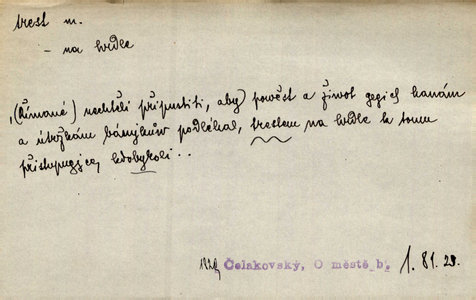 trest m.
- na hrdle
„(Římané) nechtěli připustiti, aby pověst a život gegich hanám
a útržkám básnjkůw podléhal, trestem na hrdle k tomu
přistupugjce, kdobykoli . .
1829 Čelakovský, O městě b. 1. 81. 29.